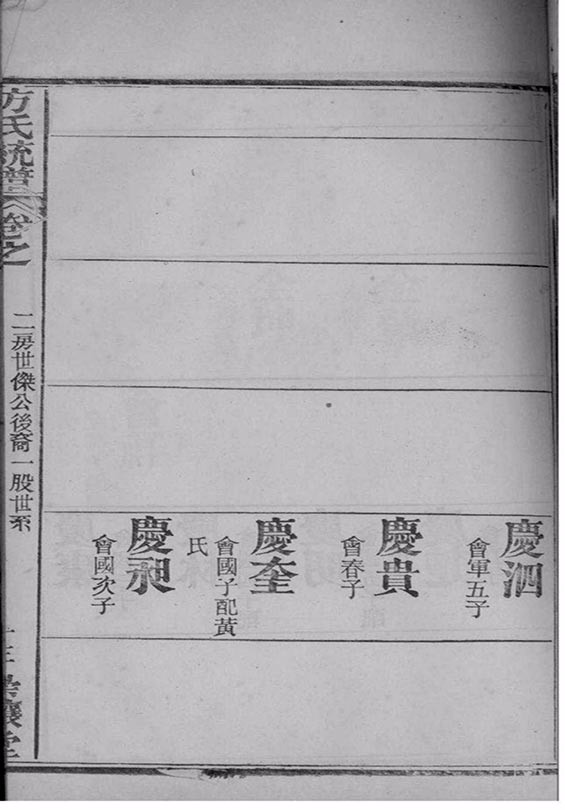 慶泗
會軍五子
慶貴
會春子
慶奎
會國子配黃
氏
慶昶
會國次子
方氏統譜
卷之
二房世傑公後裔一股世系